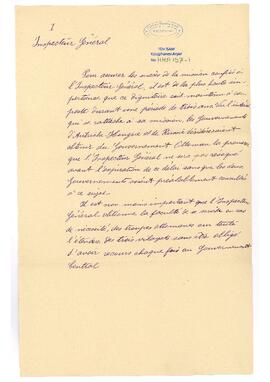 I
Inspecteur Général
TDV İSAM
Kütüphanesi Arşivi
No HHP 197-1
Pour assurer les de la mission confiée à
l'Inspecteur Général, il est de la plus haute im-
portance que ce dignitaire soit maintenu à son
poste durant une période de trois ans. Vu l'intérêt
qui se rattache à sa mission, les Gouvernements
d'Autriche-Hongrie et de Russie désireraient
obtenir du Gouvernement Ottoman la promesse
que l'Inspecteur Général ne sera pas révoqué
avant l'expiration de ce délai sans que les deux
Gouvernements soient préalablement consultés
à ce sujet.
Il est non moins important que l'Inspecteur
Général obtienne la faculté de se servir en cas
de nécessité, des troupes ottomanes sur toute
l'étendue des trois vilayets sans être obligé
d'avoir recours chaque fois au Gouvernement
Central